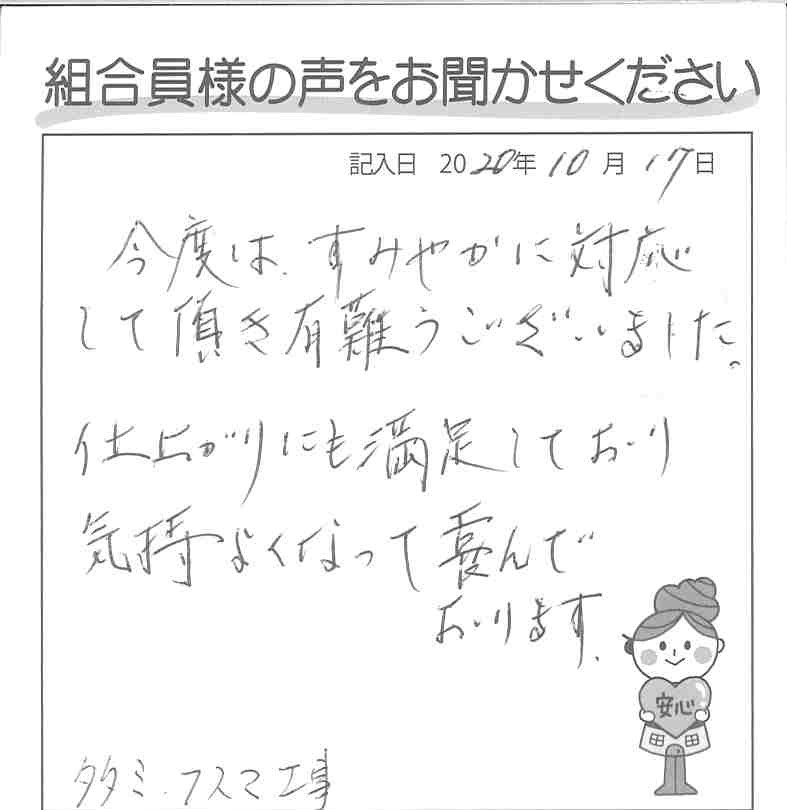 組合員様の声をお聞かせください
記入日 2020年10月17日
今度は、すみやかに対応
して頂き有難うございました。
仕上がりにも満足しており
気持よくなって喜んで
おります。
安心
タタミ・フスマ工事